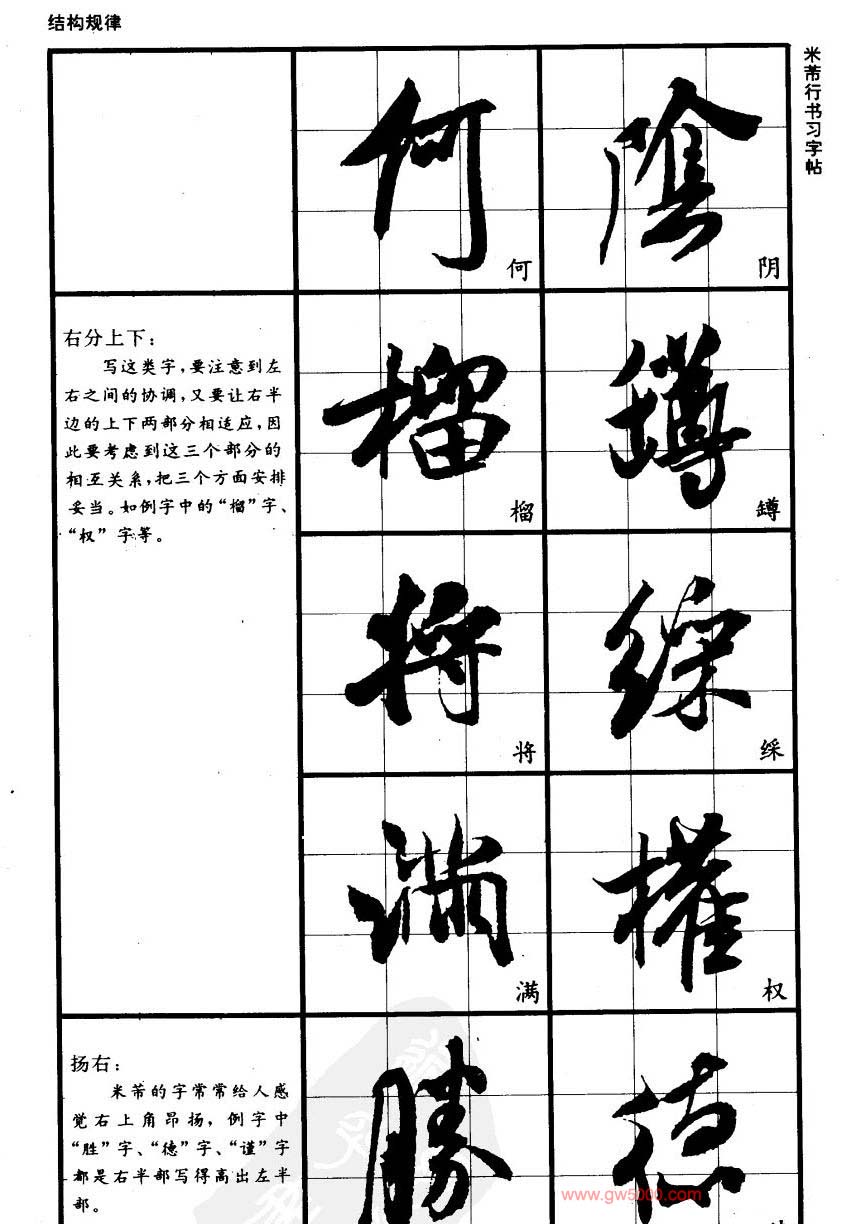 结构规律
米芾行书习字帖
何
阴
右分上下：
写这类字，要注意到左
右之间的协调，又要让右半
边的上下两部分相适应，因
此要考虑到这三个部分的
相互关系，把三个方面安排
妥当。如例字中的“榴”字、
“权”字等。
榴
罇
将
綵
满
权
扬右：
米芾的字常常给人感
觉右上角昂扬，例字中
“胜”字、“德”字、“谨”字
都是右半部写得高出左半
部。
勝
德
www.gw5000.com